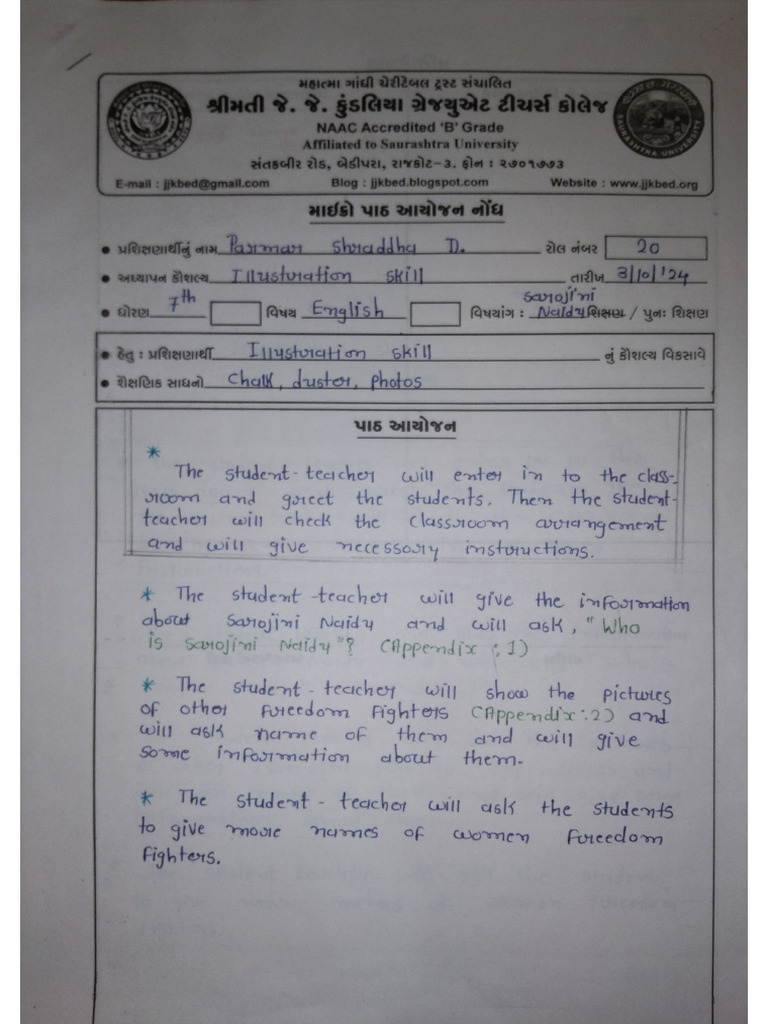 મહાત્મા ગાંધી ચેરીટેબલ ટ્રસ્ટ સંચાલિત
શ્રીમતી જે. જે. કુંડલિયા ગ્રેજયુએટ ટીચર્સ કોલેજ
NAAC Accredited 'B' Grade
Affiliated to Saurashtra University
સંતકબીર રોડ, બેડીપરા, રાજકોટ-૩. ફોન : ૨૭૦૧૭૭૩
E-mail : jjkbed@gmail.com Blog : jjkbed.blogspot.com Website : www.jjkbed.org
માઈક્રો પાઠ આયોજન નોંધ
• પ્રશિક્ષણાર્થીનું નામ Parmar Shraddha D. રોલ નંબર 20
• અધ્યાપન કૌશલ્ય Illustration skill તારીખ 3/10/'24
• ધોરણ 7th વિષય English વિષયાંગ : Sarojini Naidu શિક્ષણ / પુનઃ શિક્ષણ
• હેતુ : પ્રશિક્ષણાર્થી Illustration skill નું કૌશલ્ય વિકસાવે
• શૈક્ષણિક સાધનો Chalk, duster, photos
પાઠ આયોજન
*
The student-teacher will enter in to the class-
room and greet the students. Then the student-
teacher will check the classroom arrangement
and will give necessory instructions.
* The student-teacher will give the information
about Sarojini Naidu and will ask, "Who
is Sarojini Naidu"? (Appendix : 1)
* The student-teacher will show the pictures
of other freedom fighters (Appendix : 2) and
will ask name of them and will give
some information about them.
* The student-teacher will ask the students
to give more names of women freedom
fighters.